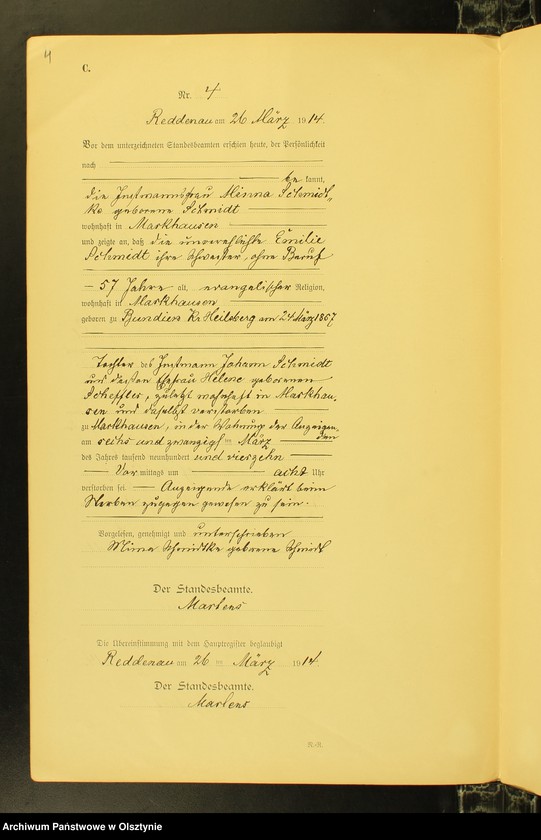 4
C.
Nr. 4
Reddenau am 26 März 1914.
Vor dem unterzeichneten Standesbeamten erschien heute, der Persönlichkeit
nach
be kannt,
die Instmannsfrau Minna Schmidt-
ke geborene Schmidt
wohnhaft in Markhausen
und zeigte an, daß die unverehlichte Emilie
Schmidt ihre Schwester, ohne Beruf
57 Jahre alt, evangelischer Religion,
wohnhaft in Markhausen
geboren zu Bundien Kr. Heilsberg am 24 März 1857
Tochter des Instmann Johann Schmidt
und dessen Ehefrau Helene geborenen
Scheffler, zuletzt wohnhaft in Markhau-
sen und daselbst verstorben
zu Markhausen, in der Wohnung der Anzeigen-
den
am sechs und zwanzigst ten März
des Jahres tausend neunhundert und vierzehn
Vor mittags um acht Uhr
verstorben sei. Anzeigende erklärt beim
Sterben zugegen gewesen zu sein.
Vorgelesen, genehmigt und unterschrieben
Minna Schmidtke geborene Schmidt
Der Standesbeamte.
Martens
Die Übereinstimmung mit dem Hauptregister beglaubigt
Reddenau am 26 ten März 1914
Der Standesbeamte.
Martens
R-R.
Archiwum Państwowe w Olsztynie